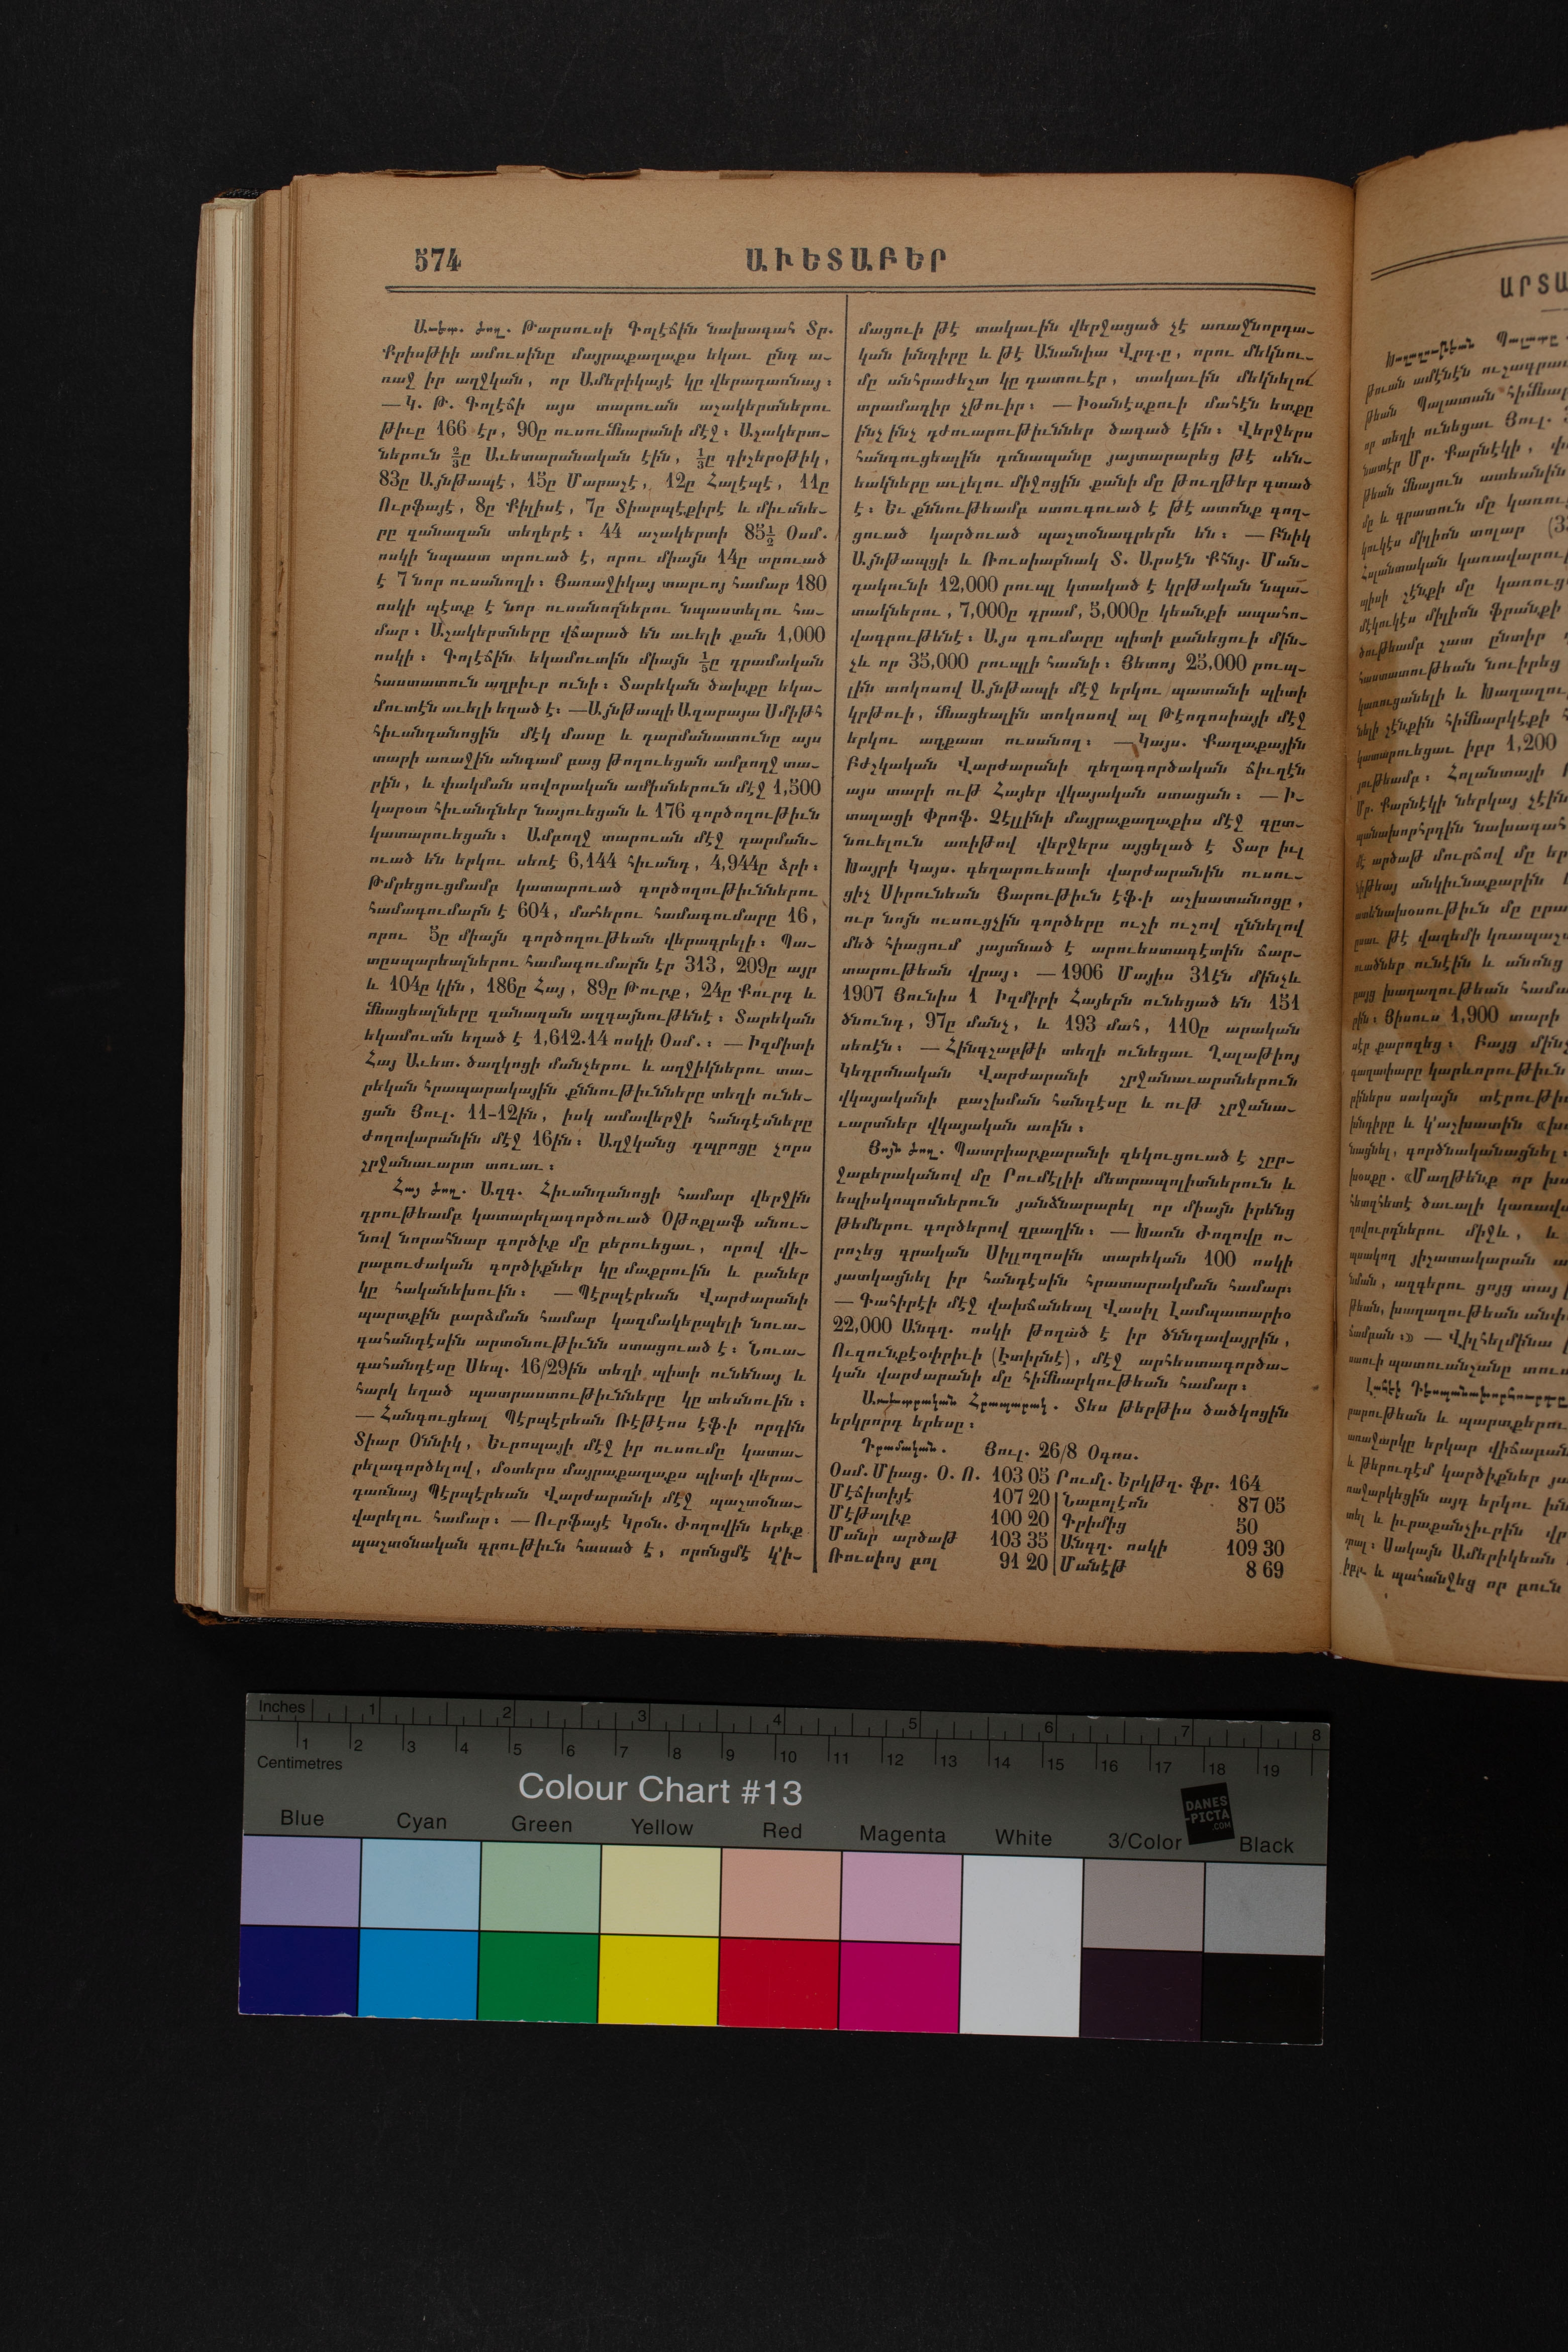 574
ԱՒԵՏԱԲԵՐ
Աւետ. ժող. Թարսուսի Գոլէճին նախագահ Տր.
Քրիսթիի ամուսինը մայրաքաղաքս եկաւ ընդ ա-
ռաջ իր աղջկան, որ Ամերիկայէ կը վերադառնայ:
— Կ. Թ. Գոլէճի այս տարուան աշակերտներու
թիւը 166 էր, 90ը ուսումնարանի մէջ: Աշակերտ-
ներուն ⅔ը Աւետարանական էին, ⅓ը գիշերօթիկ,
83ը Այնթապէ, 15ը Մարաշէ, 12ը Հալէպէ, 11ը
Ուրֆայէ, 8ը Քիլիսէ, 7ը Տիարպէքիրէ և միւսնե-
րը զանազան տեղերէ: 44 աշակերտի 85½ Օսմ.
ոսկի նպաստ տրուած է, որու միայն 14ը տրուած
է 7 նոր ուսանողի: Յառաջիկայ տարւոյ համար 180
ոսկի պէտք է նոր ուսանողներու նպաստելու հա-
մար: Աշակերտները վճարած են աւելի քան 1,000
ոսկի: Գոլէճին եկամուտին միայն ⅕ը դրամական
հաստատուն աղբիւր ունի: Տարեկան ծախքը եկա-
մուտէն աւելի եղած է: — Այնթապի Ազարայա Սմիթհ
հիւանդանոցին մէկ մասը և դարմանատունը այս
տարի առաջին անգամ բաց թողուեցան ամբողջ տա-
րին, և փակման սովորական ամիսներուն մէջ 1,500
կարօտ հիւանդներ նայուեցան և 176 գործողութիւն
կատարուեցան: Ամբողջ տարուան մէջ դարման-
ուած են երկու սեռէ 6,144 հիւանդ, 4,944ը ձրի:
Թմրեցուցմամբ կատարուած գործողութիւններու
համագումարն է 604, մահերու համագումարը 16,
որու 5ը միայն գործողութեան վերագրելի: Պա-
տըսպարեալներու համագումարն էր 313, 209ը այր
և 104ը կին, 186ը Հայ, 89ը Թուրք, 24ը Քուրդ և
մնացեալները զանազան ազգայնութենէ: Տարեկան
եկամուտն եղած է 1,612.14 ոսկի Օսմ.: — Իզմիտի
Հայ Աւետ. ծաղկոցի մանչերու և աղջիկներու տա-
րեկան հրապարակային քննութիւնները տեղի ունե-
ցան Յուլ. 11-12ին, իսկ ամավերջի հանդէսները
ժողովարանին մէջ 16ին: Աղջկանց դպրոցը չորս
շրջանաւարտ տուաւ:
Հայ ժող. Ազգ. Հիւանդանոցի համար վերջին
դրութեամբ կատարելագործուած Օթոքլաֆ անու-
նով նորահնար գործիք մը բերուեցաւ, որով վի-
րաբուժական գործիքներ կը մաքրուին և բաներ
կը հականեխուին: — Պէրպէրեան Վարժարանի
պարտքին բարձման համար կազմակերպելի նուա-
գահանդէսին արտօնութիւնն ստացուած է: Նուա-
գահանդէսը Սեպ. 16/29ին տեղի պիտի ունենայ և
հարկ եղած պատրաստութիւնները կը տեսնուին:
— Հանգուցեալ Պէրպէրեան Ռէթէոս էֆ.ի որդին
Տիար Օննիկ, Եւրոպայի մէջ իր ուսումը կատա-
րելագործելով, մօտերս մայրաքաղաքս պիտի վերա-
դառնայ Պէրպէրեան Վարժարանի մէջ պաշտօնա-
վարելու համար: — Ուրֆայէ Կրօն. Ժողովին երեք
պաշտօնական գրութիւն հասած է, որոնցմէ կ՚ի-
մացուի թէ տակաւին վերջացած չէ առաջնորդա-
կան խնդիրը և թէ Անանիա Վրդ.ը, որու մեկնու-
մը անհրաժեշտ կը դատուէր, տակաւին մեկնելու
տրամադիր չթուիր: — Իօանէսքուի մահէն ետքը
ինչ ինչ դժուարութիւններ ծագած էին: Վերջերս
հանգուցեալին դռնապանը յայտարարեց թէ սեն-
եակները աւլելու միջոցին քանի մը թուղթեր գտած
է: Եւ քննութեամբ ստուգուած է թէ ատոնք գող-
ցուած կարծուած պաշտօնագրերն են: — Բնիկ
Այնթապցի և Ռուսիաբնակ Տ. Արսէն Քհնյ. Ման-
դակունի 12,000 րուպլ կտակած է կրթական նպա-
տակներու, 7,000ը դրամ, 5,000ը կեանքի ապահո-
վագրութենէ: Այս գումարը պիտի բանեցուի մին-
չև որ 35,000 րուպլի հասնի: Յետոյ 25,000 րուպ-
լին տոկոսով Այնթապի մէջ երկու պատանի պիտի
կրթուի, մնացեալին տոկոսով ալ Թէոդոսիայի մէջ
երկու աղքատ ուսանող: — Կայս. Քաղաքային
Բժշկական Վարժարանի դեղագործական ճիւղէն
այս տարի ութ Հայեր վկայական ստացան: — Ի-
տալացի Փրոֆ. Ձէլլինի մայրաքաղաքիս մէջ գըտ-
նուելուն առիթով վերջերս այցելած է Տար իւլ
Խայրի Կայս. գեղարուեստի վարժարանին ուսու-
ցիչ Սիրունեան Յարութիւն էֆ.ի աշխատանոցը,
ուր նոյն ուսուցչին գործերը ուշի ուշով զննելով
մեծ հիացում յայտնած է արուեստագէտին ճար-
տարութեան վրայ: — 1906 Մայիս 31էն մինչև
1907 Յունիս 1 Իզմիրի Հայերն ունեցած են 151
ծնունդ, 97ը մանչ, և 193 մահ, 110ը արական
սեռէն: — Հինգշաբթի տեղի ունեցաւ Ղալաթիոյ
Կեդրոնական Վարժարանի շրջանաւարտներուն
վկայականի բաշխման հանդէսը և ութ շրջանա-
ւարտներ վկայական առին:
Յոյն ժող. Պատրիարքարանի զեկուցուած է շըր-
ջաբերականով մը Րումէլիի մետրապոլիտներուն և
եպիսկոպոսներուն յանձնարարել որ միայն իրենց
թեմերու գործերով զբաղին: — Խառն Ժողովը ո-
րոշեց գրական Սիլլոգոսին տարեկան 100 ոսկի
յատկացնել իր հանդէսին հրատարակման համար:
— Գահիրէի մէջ վախճանեալ Վասիլ Լամպատարիօ
22,000 Անգղ. ոսկի թողած է իր ծննդավայրին,
Ուզունքէօփրիւի (Էտիրնէ), մէջ արհեստագործա-
կան վարժարանի մը հիմնարկութեան համար:
Առեւտրական Հրապարակ. Տես թերթիս ծածկոցին
երկրորդ երեսը:
Դրամական. Յուլ. 26/8 Օգոս.
Օսմ. Միաց. Օ. Ո. 103 05 Րումլ. Երկթղ. ֆր. 164
Մէճիտիյէ 107 20 Նաբոլէոն 87 05
Մէթալիք 100 20 Գրիմից 50
Մանր արծաթ 103 35 Անգղ. ոսկի 109 30
Ռուսիոյ բոլ 91 20 Մանէթ 8 69
Inches 1 2 3 4 5 6 7 8
1 2 3 4 5 6 7 8 9 10 11 12 13 14 15 16 17 18 19
Centimetres
Colour Chart #13
DANES
-PICTA
.COM
Blue Cyan Green Yellow Red Magenta White 3/Color Black